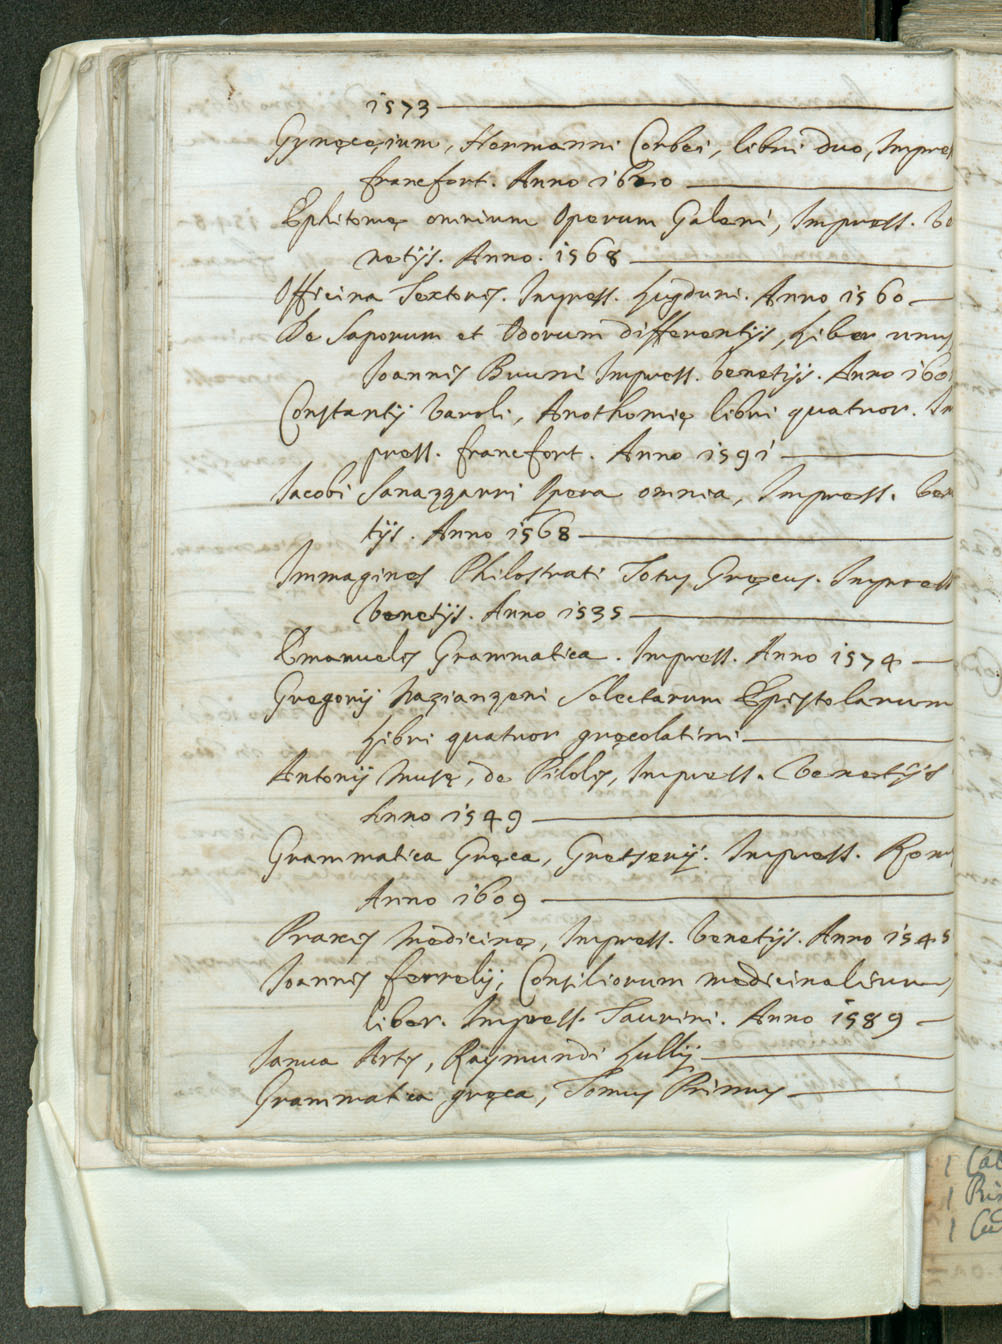 1573
Gynęcęium, Hermanni Corbei, libri duo, Impre
francfort. Anno 1620
Ephitomę omnium Operum Galeni, Impress. be
netijs. Anno. 1568
Officina Textoris. Impress. Lugduni. Anno 1560
De Saporum et Odorum differentijs, Liber unus
Joannis Bruni Impress. benetijs. Anno 160
Constantij Varoli, Anothomię libri quatuor. Im
press. francfort. Anno 1591
Jacobi Sanazzarri Opera omnia, Impress. bene
tijs. Anno 1568
Immagines Philostrati Totus Gręcus. Impress
benetijs. Anno 1535
Emanuelis Grammatica. Impress. Anno 1574
Gregorij Nazianzeni Selectarum Epistolarum
Libri quatuor gręcolatini
Antonij Musę, de Pilolis, Impress. benetijs
Anno 1549
Grammatica Gręca, Gretserij. Impress. Rom
Anno 1609
Praxis Medicinę, Impress. benetijs. Anno 1545
Joannis ferrelij, Consiliorum medicinalium
liber. Impress. Taurini. Anno 1589
Janua Artis, Raymundi Lullij
Grammatica gręca, Tomus Primus
1
1
1